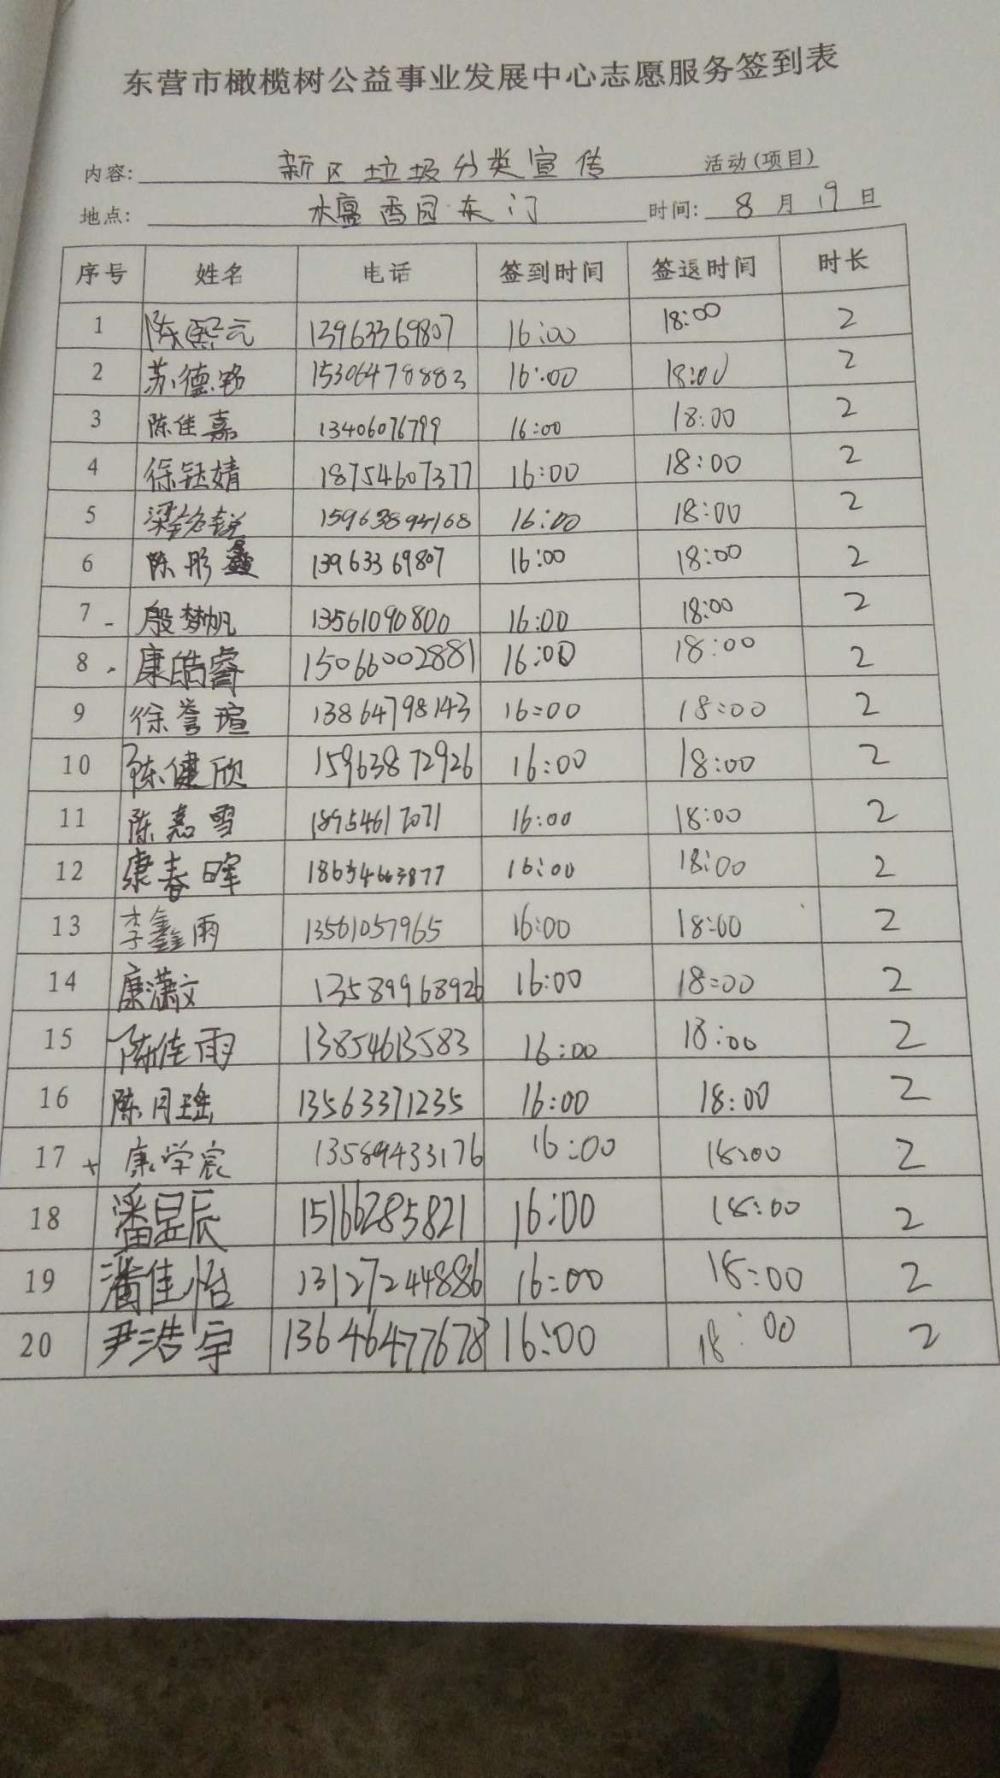 东营市橄榄树公益事业发展中心志愿服务签到表
内容: 新区垃圾分类宣传 活动(项目)
地点: 雪园东门 时间: 8月19日
序号 姓名 电话 签到时间 签退时间 时长
1 陈熙元 13963369807 16:00 18:00 2
2 苏德铭 15306478883 16:00 18:00 2
3 陈佳嘉 13406076799 16:00 18:00 2
4 徐钰婧 18754607377 16:00 18:00 2
5 梁铭锐 15963894168 16:00 18:00 2
6 陈彤鑫 13963369807 16:00 18:00 2
7 殷梦帆 13561090800 16:00 18:00 2
8 康皓睿 15066002881 16:00 18:00 2
9 徐誉瑄 13864798143 16:00 18:00 2
10 陈健欣 15963872926 16:00 18:00 2
11 陈嘉雪 18954617071 16:00 18:00 2
12 康春晖 18654663877 16:00 18:00 2
13 李鑫雨 13561057965 16:00 18:00 2
14 康潇文 13589968926 16:00 18:00 2
15 陈佳雨 13854613583 16:00 18:00 2
16 陈月瑶 13563371235 16:00 18:00 2
17 康学宸 13589433176 16:00 18:00 2
18 潘昱辰 15166285821 16:00 18:00 2
19 潘佳怡 13127244886 16:00 18:00 2
20 尹浩宇 13646477678 16:00 18:00 2